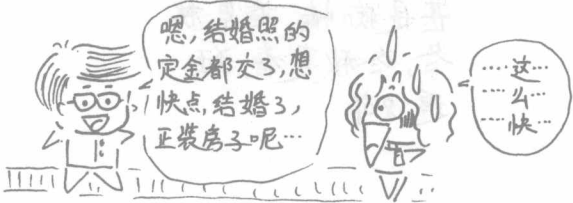 嗯,结婚照的
定金都交了,想
快点,结婚了,
正装房子呢…
……这…
……么…
……快…